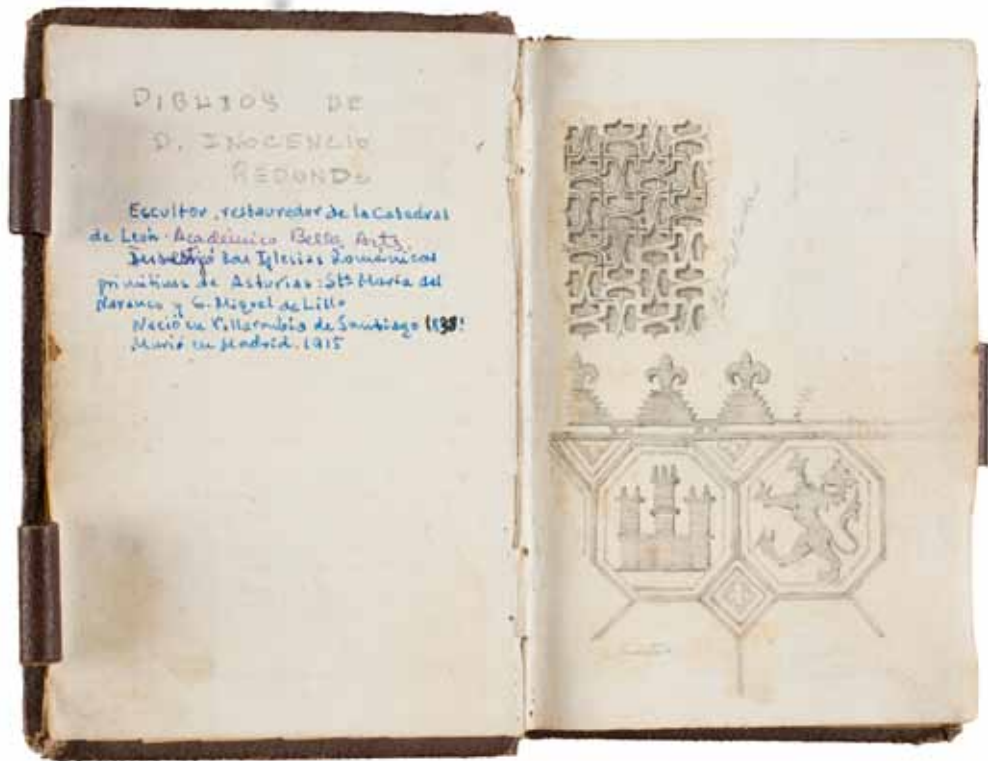 DIBUJOS DE
D. INOCENCIO
REDONDO
Escultor, restaurador de la Catedral
de León. Académico Bella Arts
las Iglesias Románicas
primitivas de Asturias: Sta María del
Naranco y S. Miguel de Lillo
Nació en Villarrubia de Santiago 1838
Murió en Madrid. 1915